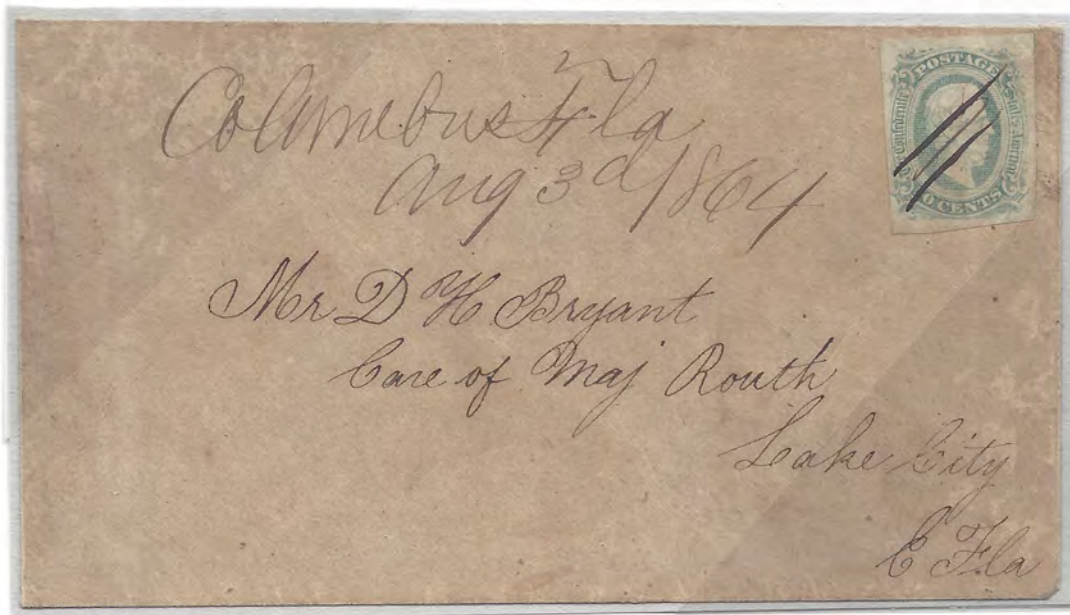 Columebus Fla
Aug 3d 1864
POSTAGE
Confederate
States America
0 CENTS
Mr D H Bryant
Care of Maj Routh
Lake City
C Fla